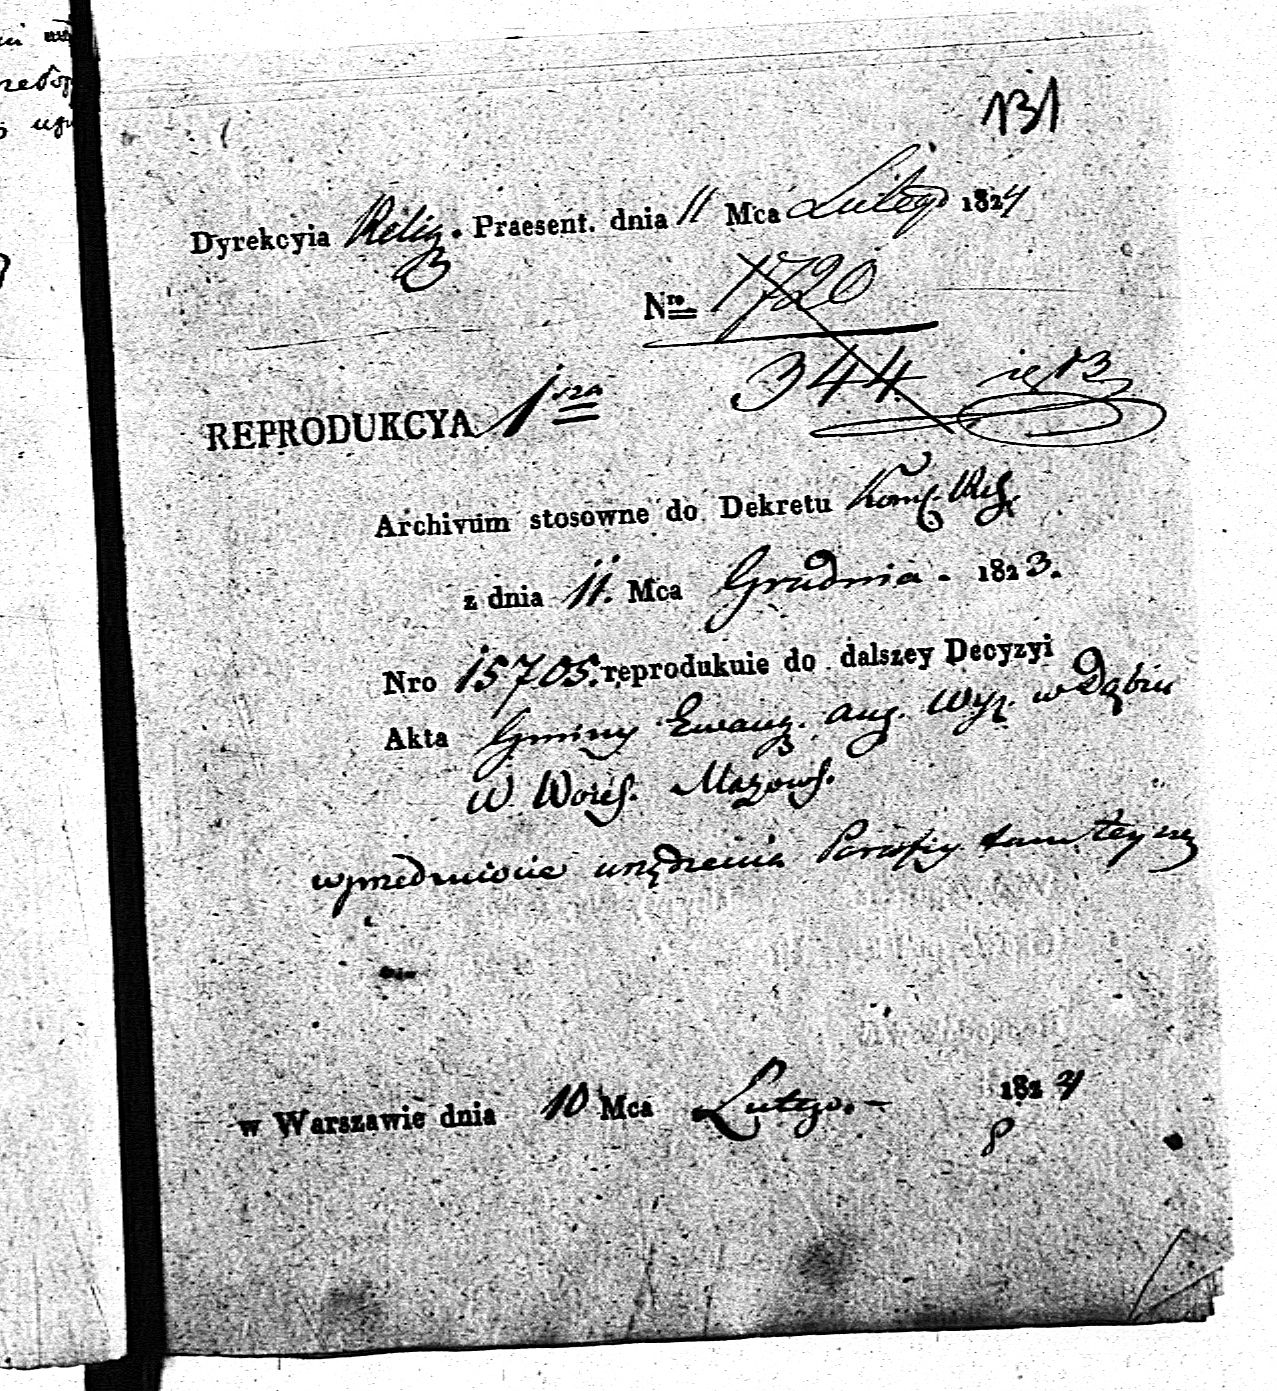 131
Dyrekcyia Relig. Praesent. dnia 11 Mca Lutego 1824
Nro 1720
344
REPRODUKCYA 1sza
Archivum stosowne do Dekretu Kom. Rel.
z dnia 11. Mca Grudnia - 1823.
Nro 15705. reprodukuie do dalszey Decyzyi
Akta Gminy Ewang. Aug. Wyz. w Dąbiu
W Woies. Mazows.
wprzedmiocie urządzenia Parafiy tamteyszey
w Warszawie dnia 10 Mca Lutego. - 1824